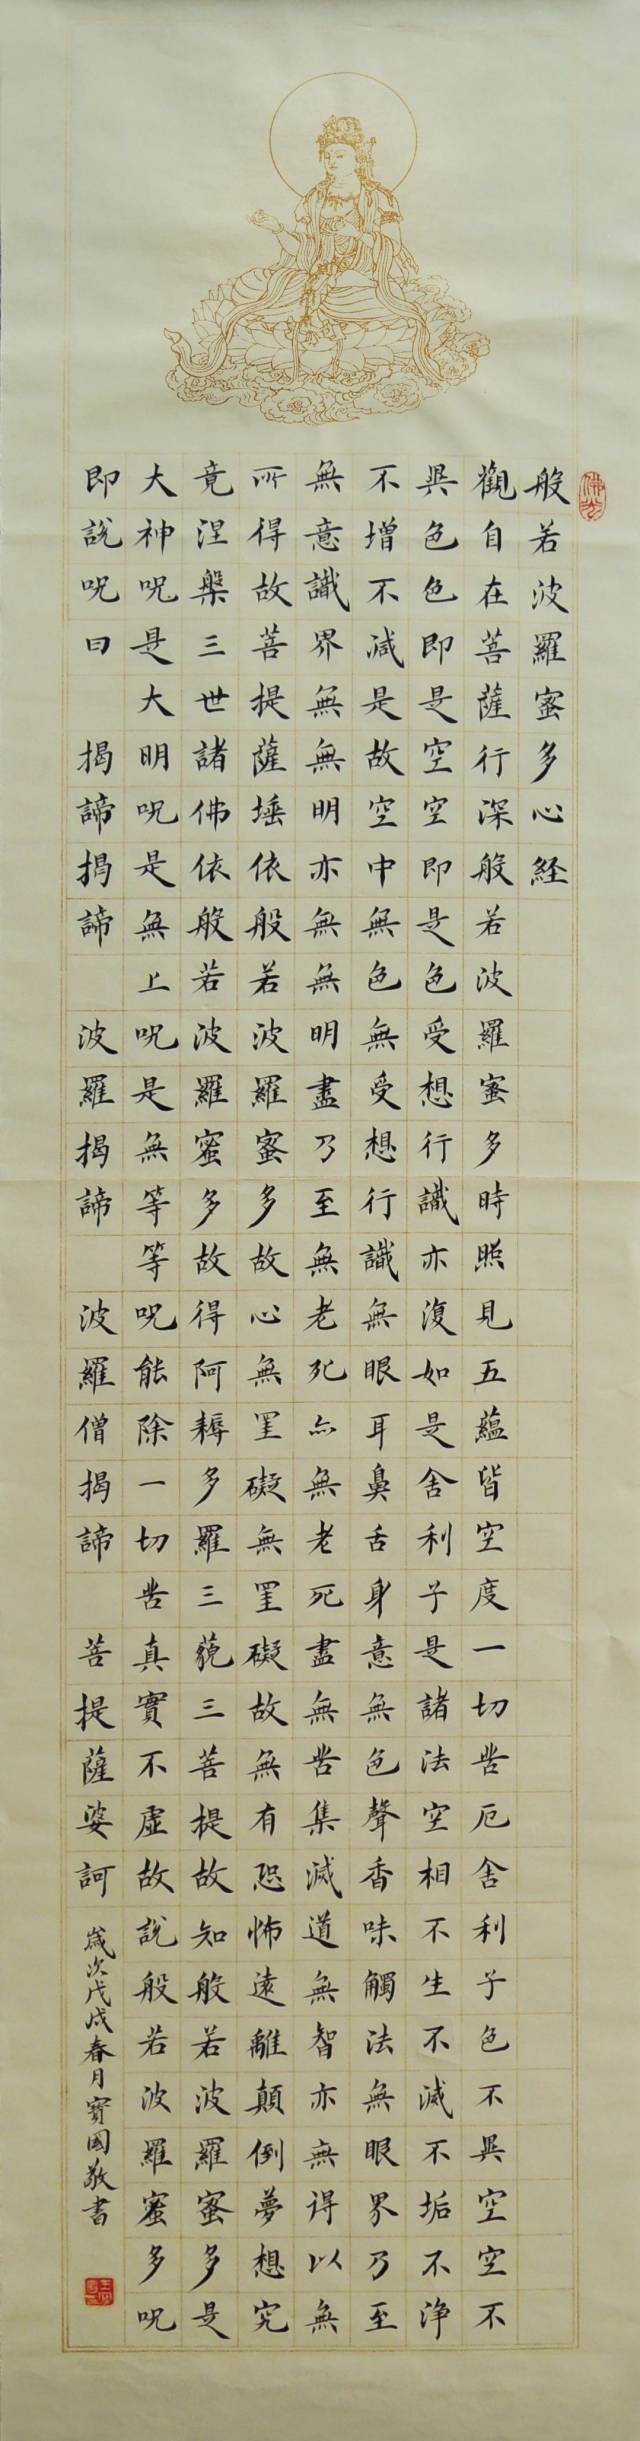 佛光
般若波羅蜜多心経
觀自在菩薩行深般若波羅蜜多時照見五蘊皆空度一切苦厄舍利子色不異空空不
異色色即是空空即是色受想行識亦復如是舍利子是諸法空相不生不滅不垢不淨
不增不減是故空中無色無受想行識無眼耳鼻舌身意無色聲香味觸法無眼界乃至
無意識界無無明亦無無明盡乃至無老死亦無老死盡無苦集滅道無智亦無得以無
所得故菩提薩埵依般若波羅蜜多故心無罣礙無罣礙故無有恐怖遠離顛倒夢想究
竟涅槃三世諸佛依般若波羅蜜多故得阿耨多羅三藐三菩提故知般若波羅蜜多是
大神呪是大明呪是無上呪是無等等呪能除一切苦真實不虛故說般若波羅蜜多呪
即說呪曰 揭諦揭諦 波羅揭諦 波羅僧揭諦 菩提薩婆訶
歲次戊戌春月寶國敬書